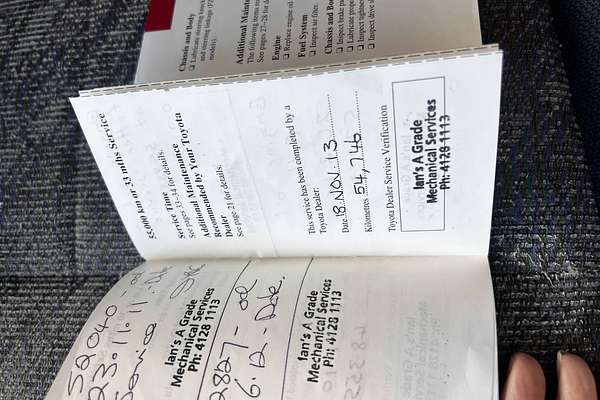 Chassis and Body
❑ Lubricate
and steering linkage
models).
Additional
The following items
See pages 27–28 for
Engine
❑ Replace engine oil
Fuel System
❑ Inspect air filter.
Chassis and Body
❑ Inspect brake
❑ Lubricate
❑ Inspect
❑ Inspect drive
55,000 km or 33 mths Service
Service Time
See pages 33–34 for details.
Additional Maintenance
Recommended by Your Toyota
Dealer
See page 21 for details.
This service has been completed by a
Toyota Dealer:
Date 18.NOV.13
Kilometres 54,746
Toyota Dealer Service Verification
Ian's A Grade
Mechanical Services
Ph: 4128 1113
52040 - od
23.11.11. Date
Service
Ian's A Grade
Mechanical Services
Ph: 4128 1113
2827 - od
6.12. Date.
Ian's A Grade
Mechanical Services
Ph: 4128 1113